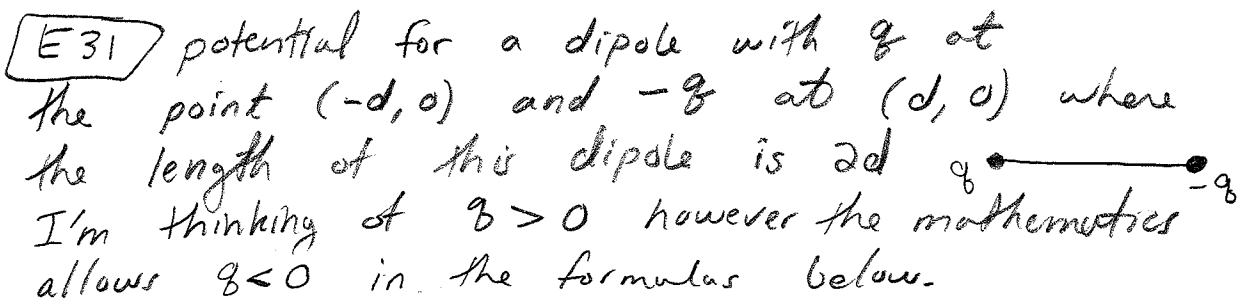 E31 potential for a dipole with q at
the point (-d, 0) and -q at (d, 0) where
the length of this dipole is 2d q -q
I'm thinking of q > 0 however the mathematics
allows q < 0 in the formulas below.